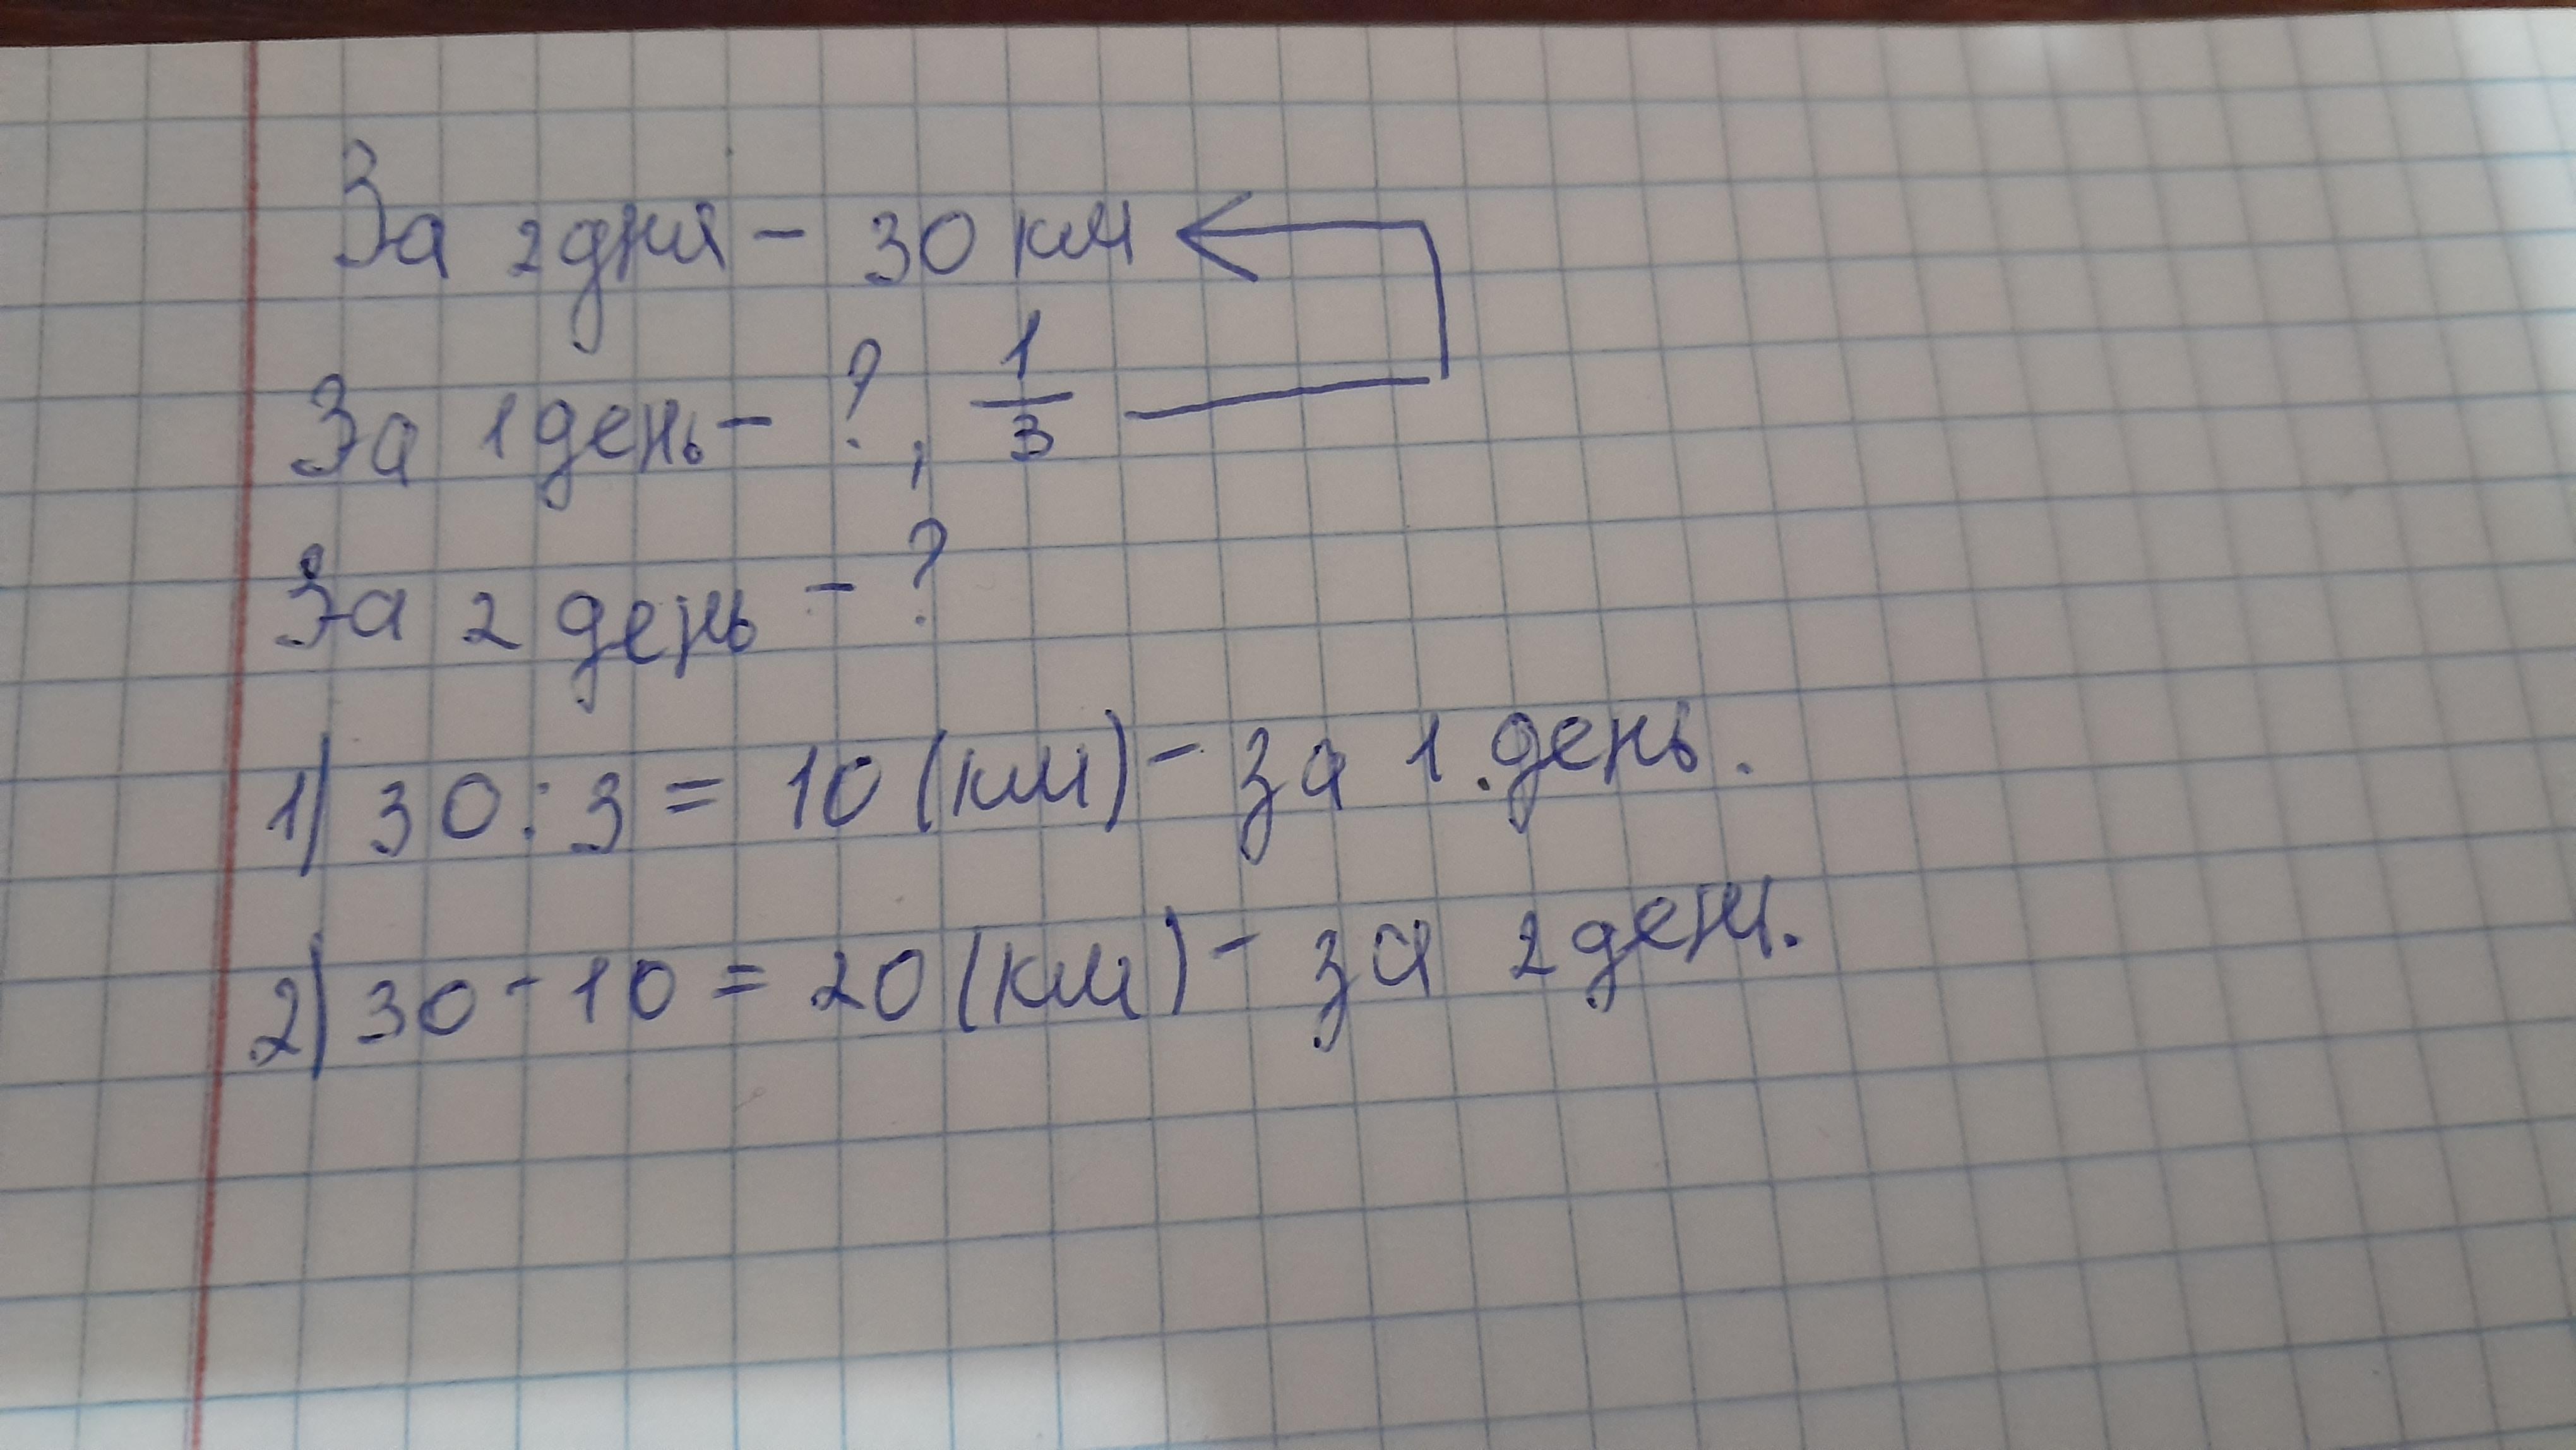 За 2 дня - 30 км
За 1 день - ?, 1/3
За 2 день - ?
1) 30 : 3 = 10 (км) - за 1 день.
2) 30 - 10 = 20 (км) - за 2 ден.